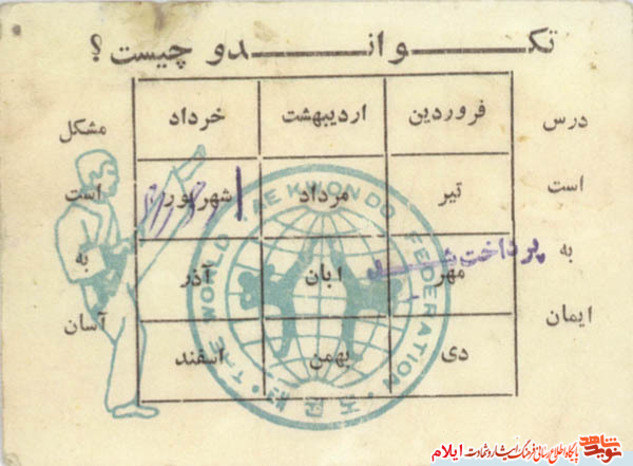 تکـــوانـــدو چیست ؟
درس
است
به
ایمان
فروردین اردیبهشت خرداد
تیر مرداد شهریور
مهر ابان آذر
دی بهمن اسفند
مشکل
است
به
آسان
پرداخت شـــد
THE WORLD TAEKWONDO FEDERATION
نوید شاهد
پایگاه اطلاع رسانی فرهنگ ایثار و شهادت ایلام